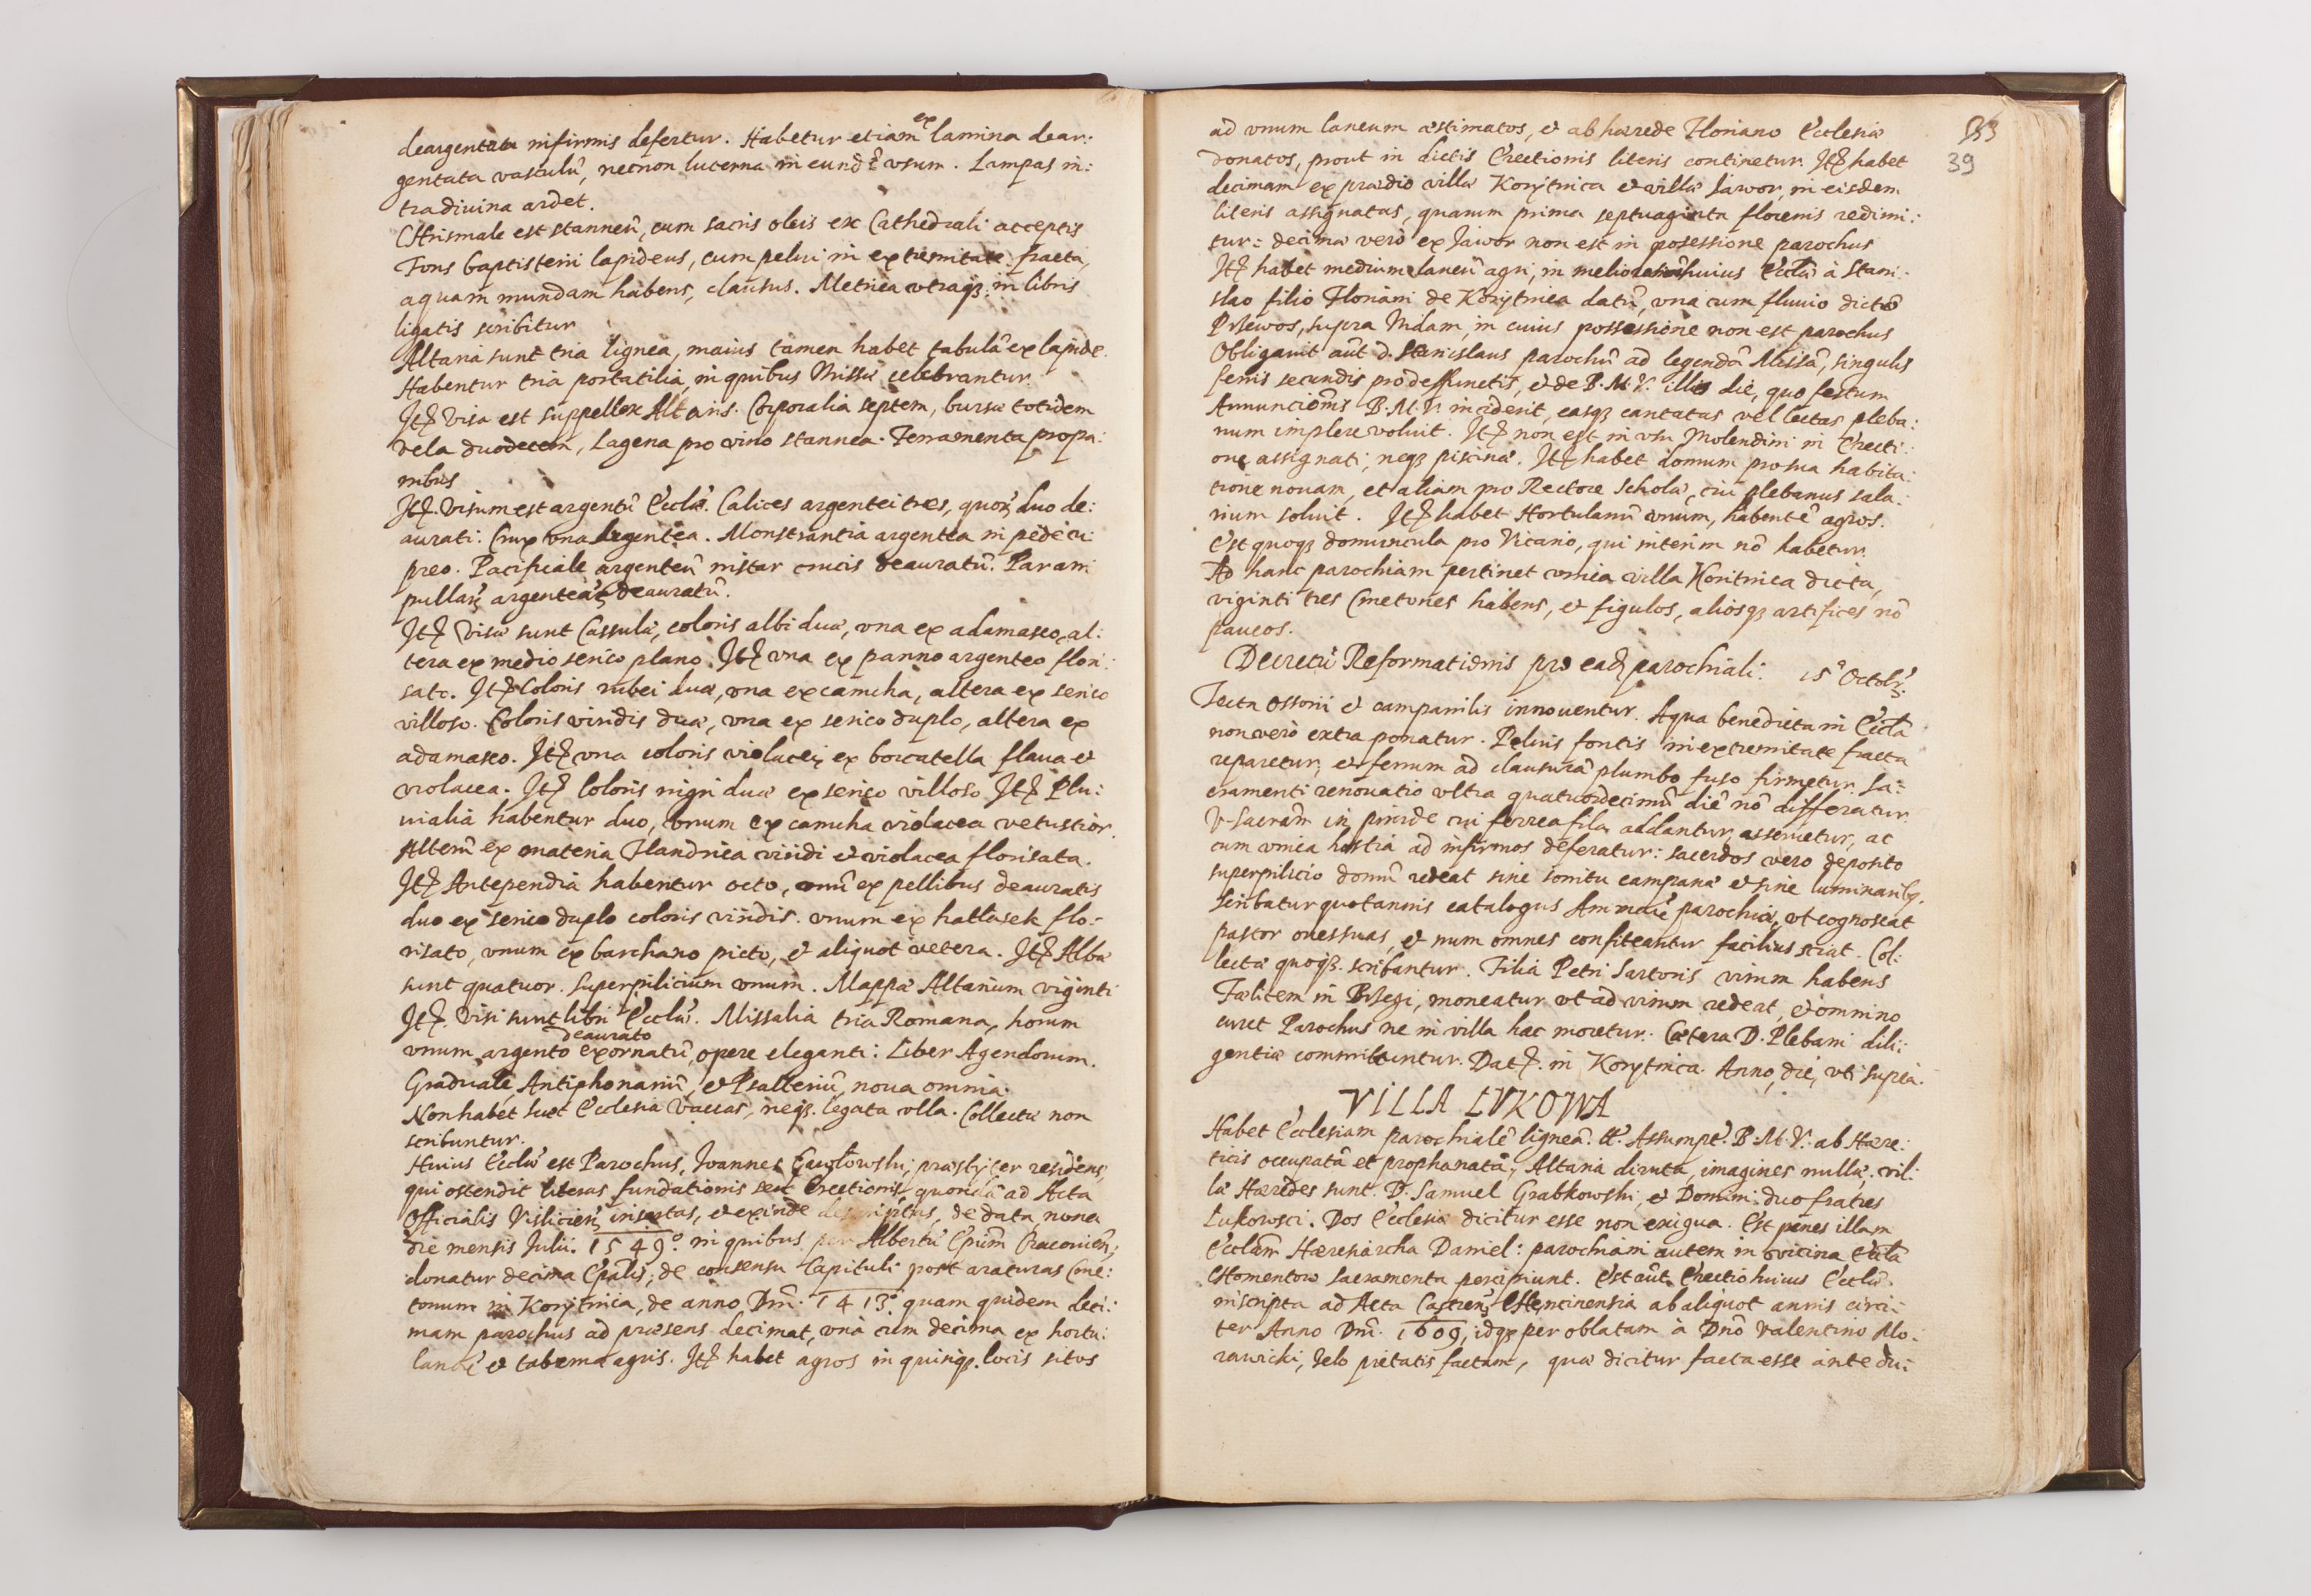 deargentata infirmis defertur. Habetur etiam ex lamina dear:
gentata vasculũ, necnon lucerna in eundẽ vsum. Lampas in:
tra diuina ardet.
Chrismale est stanneũ, cum sacris oleis ex Cathedrali acceptis
Fons baptisterii lapideus, cum pelui in extremitate fracta,
aquam mundam habens, clausus. Metrica vtraqȝ in libris
ligatis scribitur
Altaria sunt tria lignea, maius tamen habet tabulã ex lapide.
Habentur tria portatilia, in quibus Missæ celebrantur.
Itẽ Visa est suppellex Altaris. Corporalia septem, bursæ totidem
vela duodecem, Lagena pro vino stannea. Ferramenta pro pa:
nibus
Itẽ. Visum est argentũ Eccliæ. Calices argentei tres, quorȝ duo de:
aurati. Crux vna Argentea. Monstrantia argentea in pede cu:
preo. Pacificale argenteũ instar crucis deauratũ. Par am:
pullarȝ argentearȝ deauratũ.
Itẽ Visæ sunt Cassulæ, coloris albi duæ, vna ex adamasco, al:
tera ex medio serico plano. Itẽ vna ex panno argenteo flori:
sato. Itẽ Coloris rubei duæ, vna ex camcha, altera ex serico
villoso. Coloris viridis duæ, vna ex serico duplo, altera ex
adamasco. Itẽ vna coloris violacei, ex borcatella flaua et
violacea. Itẽ Coloris nigri duæ ex serico villoso. Itẽ Plu:
uialia habentur duo, vnum ex camcha violacea vetustior.
Alterũ ex materia Flandrica viridi et violacea florisata.
Itẽ Antependia habentur octo, vnũ ex pellibus deauratis
duo ex serico duplo coloris viridis. vnum ex hatłasek flo:
risato, vnum ex barchano picto, et aliquot vetera. Itẽ Albæ
sunt quatuor. Superpilicium vnum. Mappæ Altarium viginti
Itẽ. Visi sunt libri Eccliæ. Missalia tria Romana, horum
vnum argento deaurato exornatũ, opere eleganti: Liber Agendorum.
Graduale, Antiphonariũ, et Psalteriũ, noua omnia.
Non habet hæc Ecclesia vaccas, neqȝ. legata vlla. Collectæ non
scribuntur.
Huius Eccliæ est Parochus, Joannes Gawłowski, præsbyter residens,
qui ostendit literas fundationis seu Erectionis quondã ad Acta
Officialis Vislicieñ insertas, et exinde descriptas, de data nona
die mensis Julii. 1549º. in quibus per Albertũ Epũm Cracovieñ;
donatur decima Epalis, de consensu Capituli post araturas Cme:
tonum in Korytnica, de anno Dnĩ. 1413º. quam quidem deci:
mam parochus ad præsens decimat, vnà cum decima ex hortu:
lanorȝ et tabernæ agris. Itẽ habet agros in quinqȝ. locis sitos
39
ad vnum laneum æstimatos, et ab hærede Floriano Ecclesiæ
donatos, prout in dictis Erectionis literis continetur. Itẽ habet
decimam ex prædio villæ Korytnica et villæ Jawor, in eisdem
literis assignatas, quarum prima septuaginta florenis redimi:
tur: decimæ vero ex Jawor non est in posessione parochus
Itẽ habet medium laneũ agri, in meliorationẽ huius Eccliæ à Stani:
slao filio Floriani de Korytnica datũ, vna cum fluuio dicto
Prsewos, supra Nidam, in cuius possessione non est parochus
Obligauit aũt D. Stanislaus parochũ ad legendã Missã, singulis
feriis secundis pro deffunctis, et de B.M.V. illo die, quo festum
Annunciõnis B.M.V. inciderit, easqȝ cantatas vel lectas pleba:
num implere voluit. Itẽ non est in vsu Molendini in Erecti:
one assignati, neqȝ piscinæ. Itẽ habet domum pro sua habita:
tione nouam, et aliam pro Rectore Scholæ, cui plebanus sala:
rium soluit. Itẽ habet Hortulanũ vnum, habentẽ agros.
Est quoqȝ domuncula pro Vicario, qui interim nõ habetur.
Ad hanc parochiam pertinet vnica villa Koritnica dicta,
viginti tres Cmetones habens, et figulos, aliosqȝ artifices nõ
paucos.
Decretũ Reformationis pro eadȝ parochiali. 15ª Octobrȝ.
Tecta ossorii et campanilis innouentur. Aqua benedicta in Eccla
non vero extra ponatur. Peluis fontis in extremitate fracta
reparetur, et ferrum ad clausurã plumbo fuso firmetur. Sa:
cramenti renouatio vltra quatuordecimũ diẽ nõ differatur.
V. Sacrãm in pixide cui ferrea fila addantur, asseruetur, ac
cum vnica hostia ad infirmos deferatur: sacerdos vero deposito
superpilicio domũ redeat sine sonitu campanæ et sine luminaribȝ.
Scribatur quotannis catalogus Animarũ parochiæ, vt cognoscat
pastor oues suas, et num omnes confiteantur facilius sciat. Col:
lectæ quoqȝ. scribantur. Filia Petri Sartoris virum habens
Fælitem in Brsegi, moneatur vt ad virum redeat, et omnino
curet Parochus ne in villa hac moretur. Cætera D. Plebani dili:
gentiæ committuntur. Datẽ. in Korytnica. Anno, die, vti supra.
VILLA LVKOWA
Habet Ecclesiam parochialẽ ligneã. tt. Assumpt. B.M.V. ab Hære:
ticis occupatã et prophanatã, Altaria diruta, imagines nullæ. vil:
læ Hæredes sunt. D. Samuel Grabkowski, et Domini duo fratres
Lukowsci. Dos Ecclesiæ dicitur esse non exigua. Est penes illam
Eccliam Hæresiarcha Daniel: parochiani autem in vicina Eccla
Chomentow Sacramenta percipiunt. Est aũt Erectio huius Eccliæ.
inscripta ad Acta Castreñ. Chencinensia ab aliquot annis circi:
ter Anno Dnĩ. 1609, idqȝ per oblatam à Dnõ Valentino Mo:
rawicki, Zelo pietatis factam, quæ dicitur facta esse ante du: